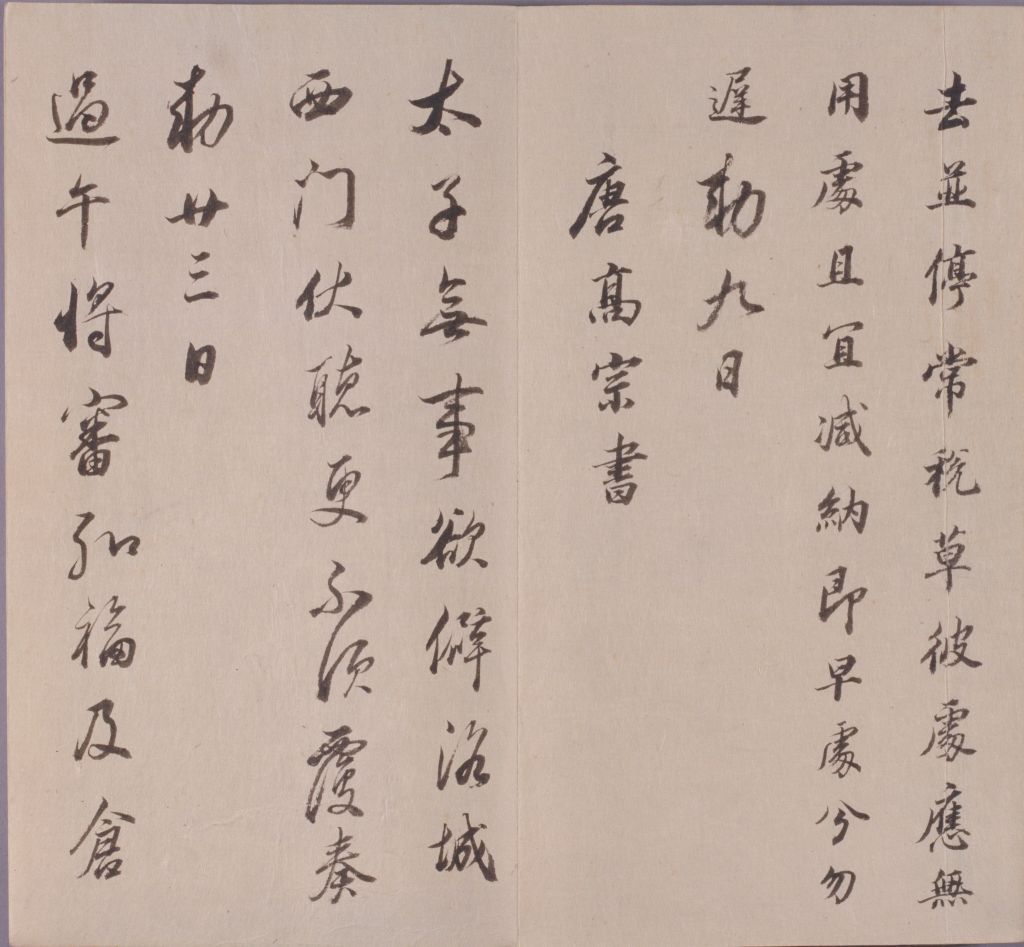 去並停常稅草彼處應無
用處且宜減納即早處分勿
遲勅九日
唐高宗書
太子無事欲僻洛城
西門仗聽更不須覆奏
勅廿三日
過午將審弘福及倉